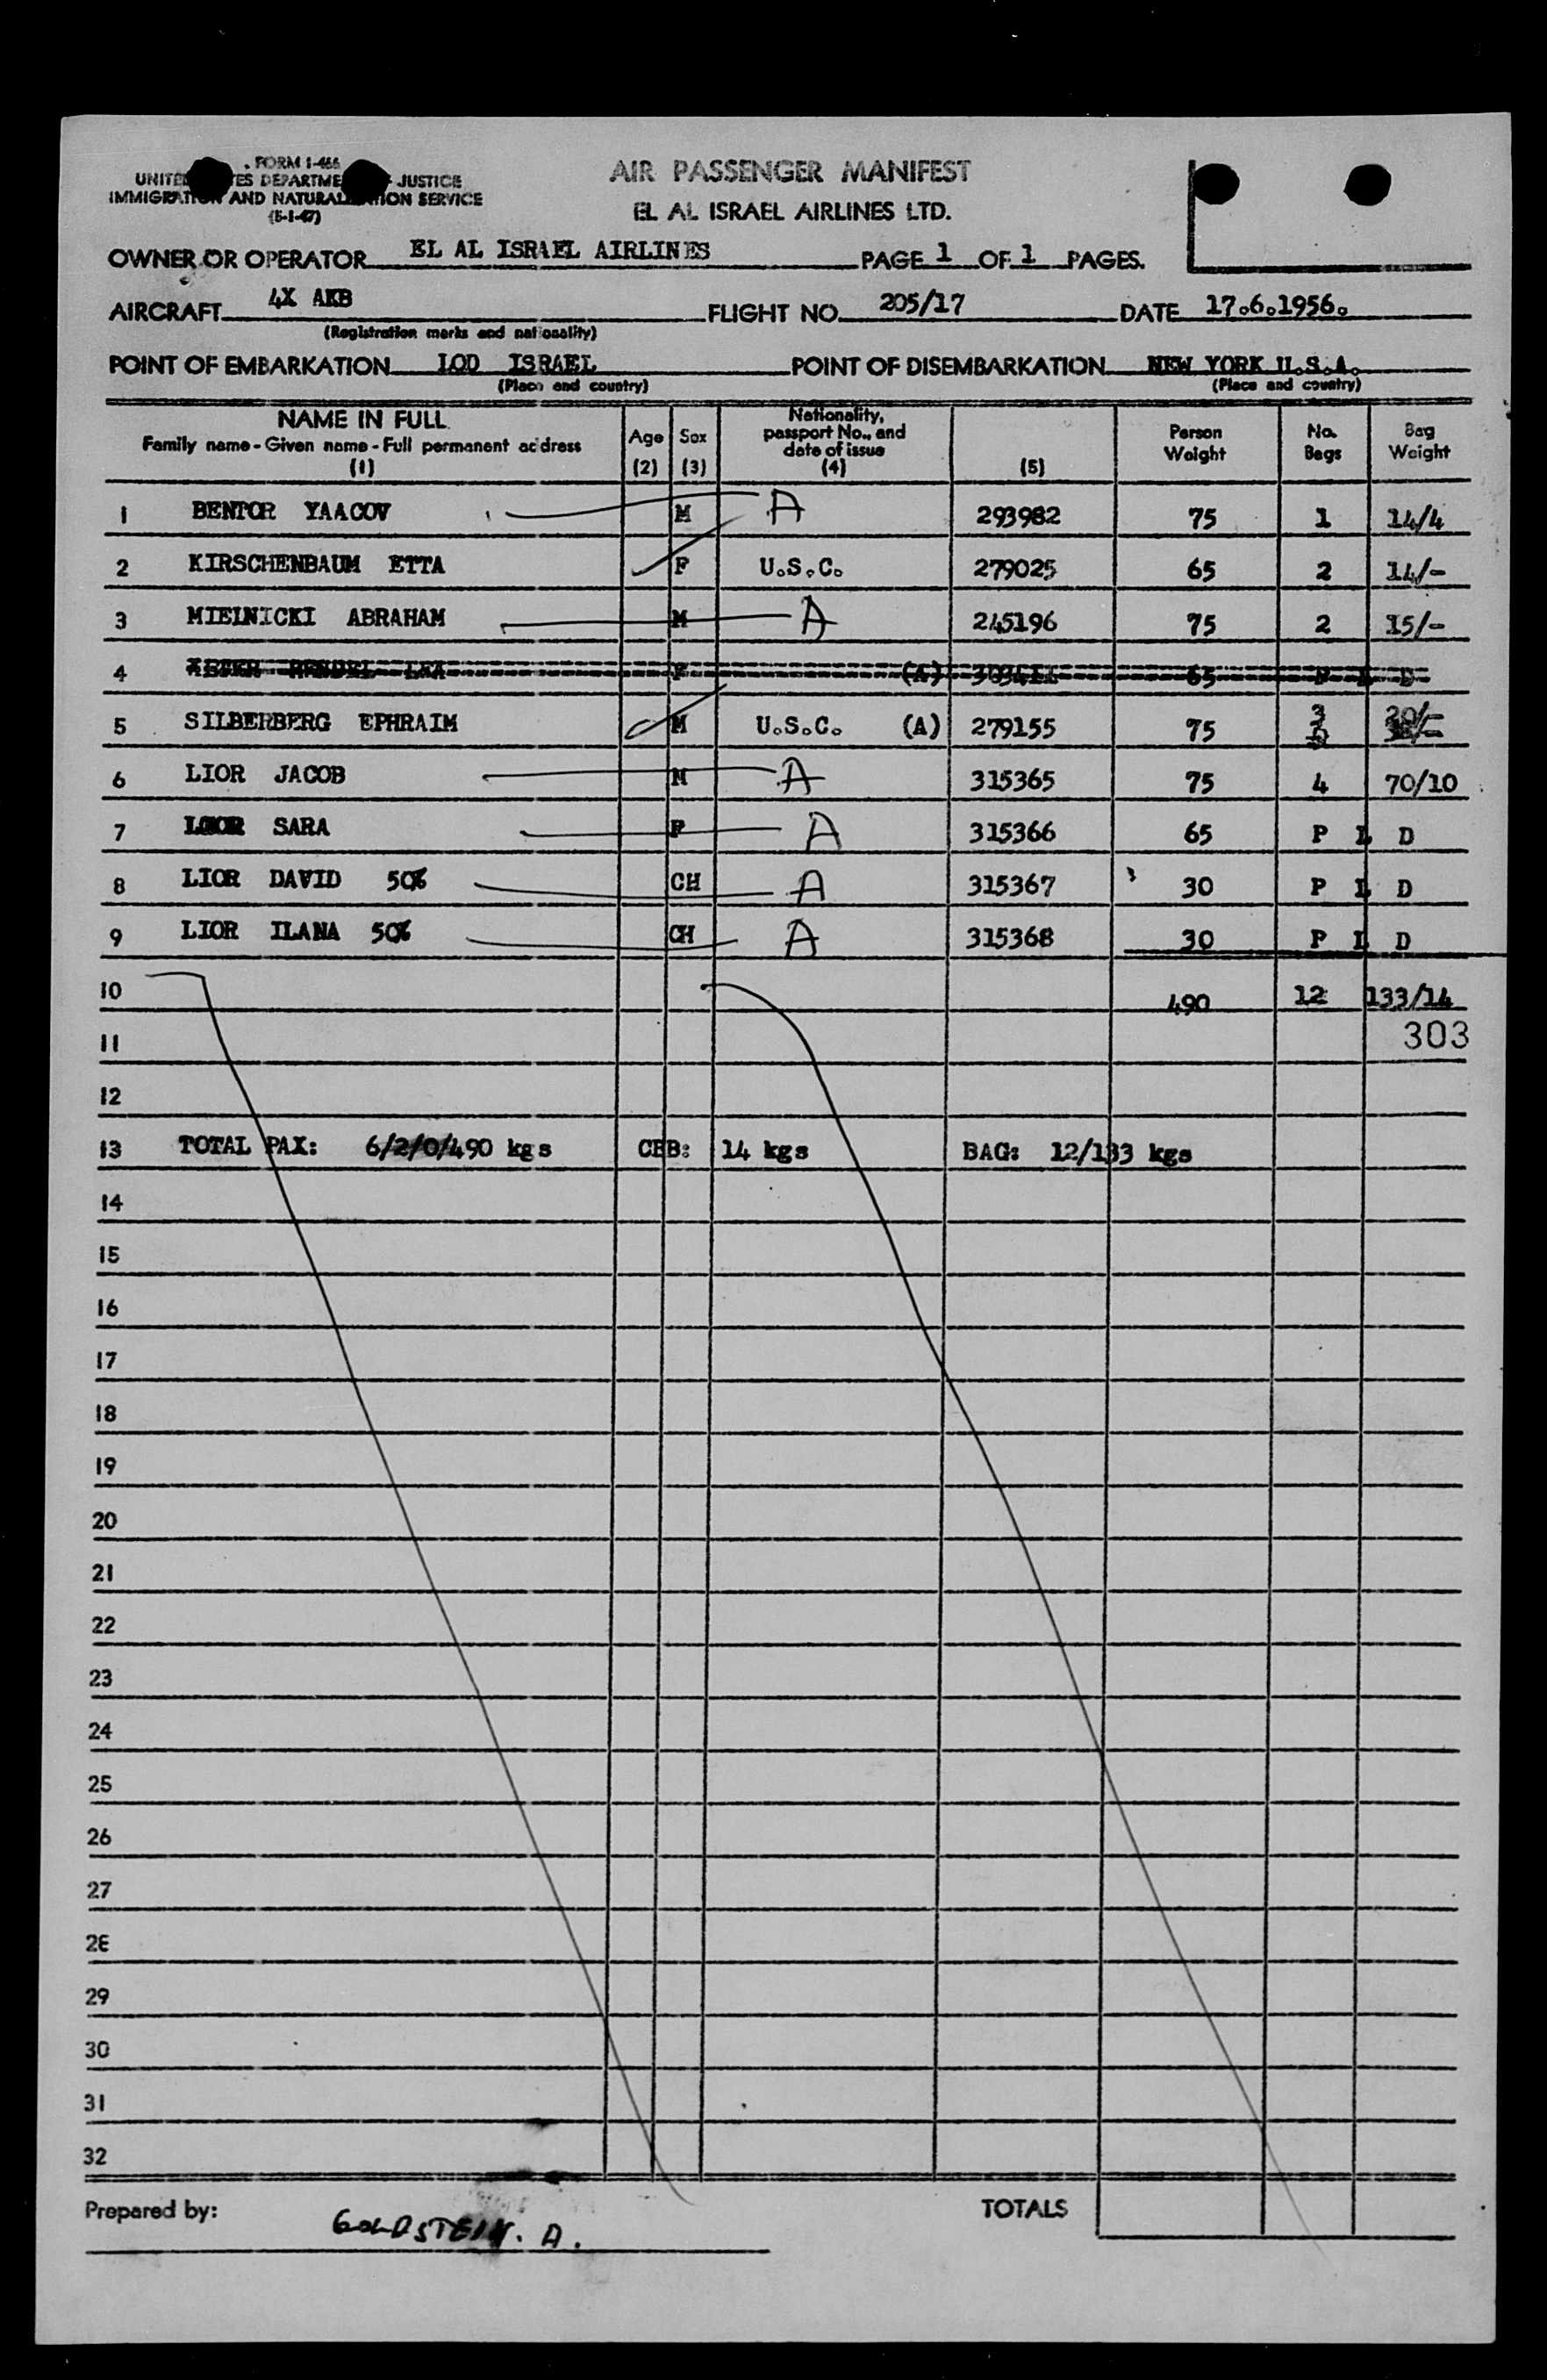 FORM I-466
UNITED STATES DEPARTMENT OF JUSTICE
IMMIGRATION AND NATURALIZATION SERVICE
(5-1-47)
AIR PASSENGER MANIFEST
EL AL ISRAEL AIRLINES LTD.
OWNER OR OPERATOR EL AL ISRAEL AIRLINES PAGE 1 OF 1 PAGES.
AIRCRAFT 4X AKB FLIGHT NO. 205/17 DATE 17.6.1956.
(Registration marks and nationality)
POINT OF EMBARKATION LOD ISRAEL POINT OF DISEMBARKATION NEW YORK U.S.A.
(Place and country) (Place and country)
NAME IN FULL
Family name - Given name - Full permanent address
(1)
Age
(2)
Sex
(3)
Nationality,
passport No., and
date of issue
(4)
(5)
Person
Weight
No.
Bags
Bag
Weight
1 BENTOR YAACOV M A 293982 75 1 14/4
2 KIRSCHENBAUM ETTA F U.S.C. 279025 65 2 14/-
3 MIELNICKI ABRAHAM M A 245196 75 2 15/-
4 F (A) 65 P L D
5 SILBERBERG EPHRAIM M U.S.C. (A) 279155 75 3 20/-
6 LIOR JACOB M A 315365 75 4 70/10
7 LIOR SARA F A 315366 65 P L D
8 LIOR DAVID 50% CH A 315367 30 P L D
9 LIOR ILANA 50% CH A 315368 30 P L D
10 490 12 133/14
11 303
12
13 TOTAL PAX: 6/2/0/490 kgs CBB: 14 kgs BAG: 12/133 kgs
14
15
16
17
18
19
20
21
22
23
24
25
26
27
28
29
30
31
32
Prepared by: GOLDSTEIN. A. TOTALS